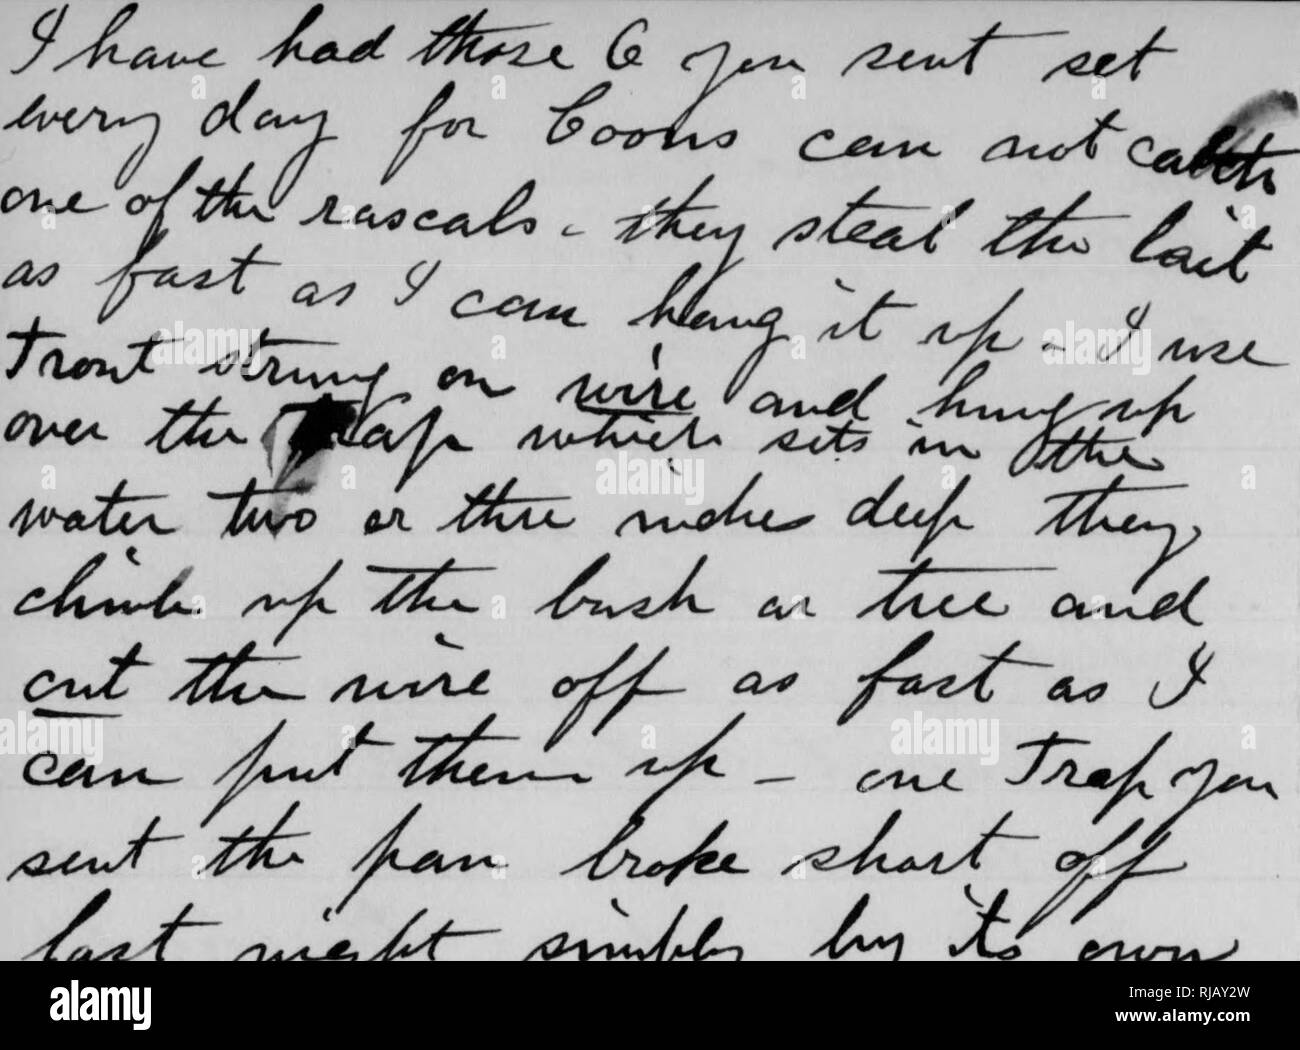 I have had those 6 you sent set
every day for Coons can not catch
one of the rascals - they steal the bait
as fast as I can hang it up - I use
Trout strung on wire and hung up
over the Trap which sets in the
water two or thre inches deep they
climb up the bush or tree and
cut the wire off as fast as I
can put them up - one Trap you
sent the pan broke short off
last night simply by its own
alamy
Image ID: RJAY2W
www.alamy.com